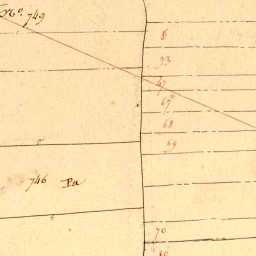 No. 749
6
93
47
67
68
69
746 Pa
70